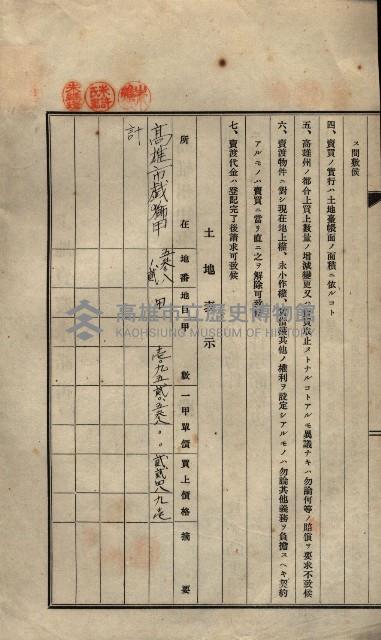 ス間敷候
四、賣買ノ實行ハ土地臺帳面ノ面積ニ依ルコト
五、高雄州ノ都合上買上數量ノ增減變更又ハ買取止メトナルコトアルモ異議ナキハ勿論何等ノ賠償ヲ要求不致候
六、賣渡物件ニ對シ現在地上權、永小作權、其他ノ權利ヲ設定シアルモノハ勿論其他義務ヲ負擔スヘキ契約
アルモノハ賣買ニ當リ直ニ之ヲ解除可致
七、賣渡代金ハ登記完了後請求可致候
土地表示
所在 地番 地目 甲數 一甲單價 買上價格 摘要
高雄市戲獅甲
計
高雄市立歷史博物館
KAOHSIUNG MUSEUM OF HISTORY